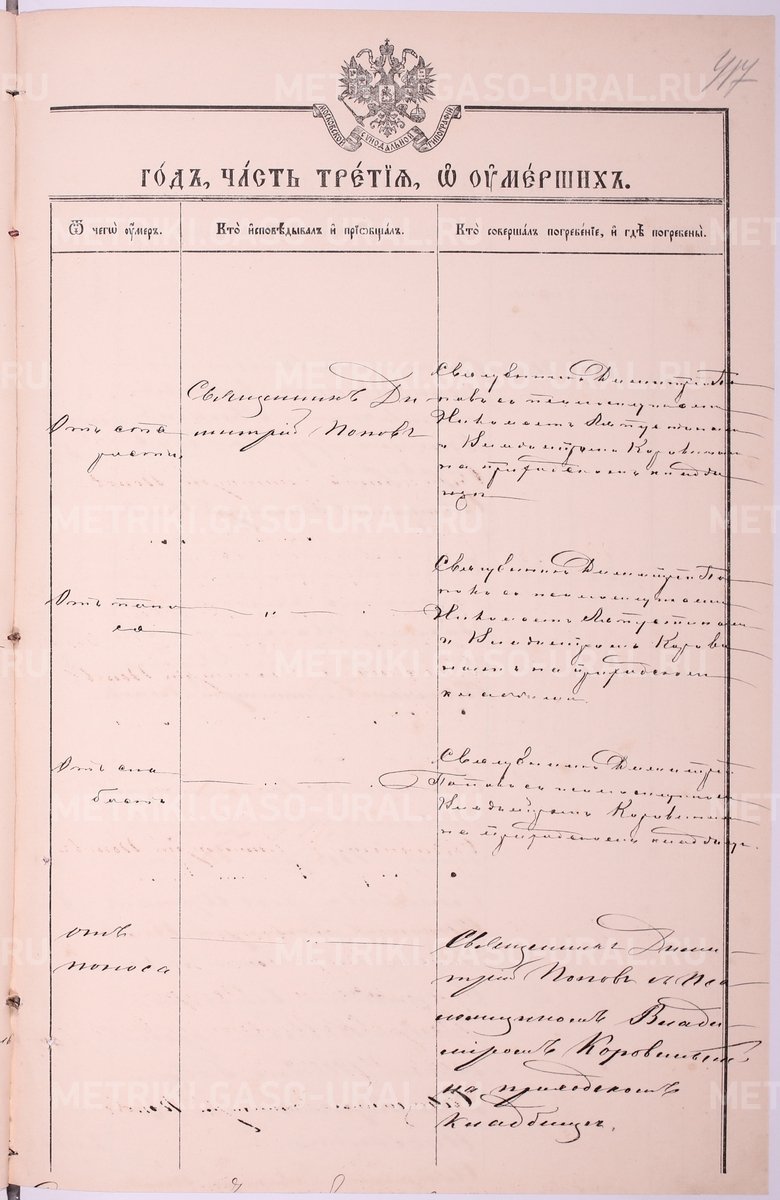 417
МОСКОВСКОЙ СѴНОДАЛЬНОЙ ТИПОГРАФІИ
ГО́ДЪ, ЧА́СТЬ ТРЕ́ТІѦ, Ѡ҆ ОУ҆МЕ́РШИХЪ.
Ѿ чегѡ̀ оу҆́меръ.
Кто̀ и҆сповѣ́дывалъ и҆ прїѡбща́лъ.
Кто̀ соверша́лъ погребе́нїе, и҆ гдѣ̀ погребены̀.
Отъ ста
рости
Священникъ Ди
митрій Поповъ
Священникъ Димитрій По
повъ съ псаломщиками
Николаемъ
и Владиміромъ Коровинымъ
на приходскомъ кладби
щѣ
Отъ поно
са
— „ —
Священникъ Димитрій По
повъ съ псаломщиками
Николаемъ
и Владиміромъ Корови
нымъ на приходскомъ
кладбищѣ
Отъ сла
бости
— „ —
Священникъ Димитрій
Поповъ съ псаломщикомъ
Владиміромъ Коровинымъ
на приходскомъ кладбищѣ.
отъ
поноса
— „ —
Священникъ Дими-
трій Поповъ съ Пса-
ломщикомъ Влади-
міромъ Коровинымъ
на приходскомъ
кладбищѣ.
METRIKI.GASO-URAL.RU